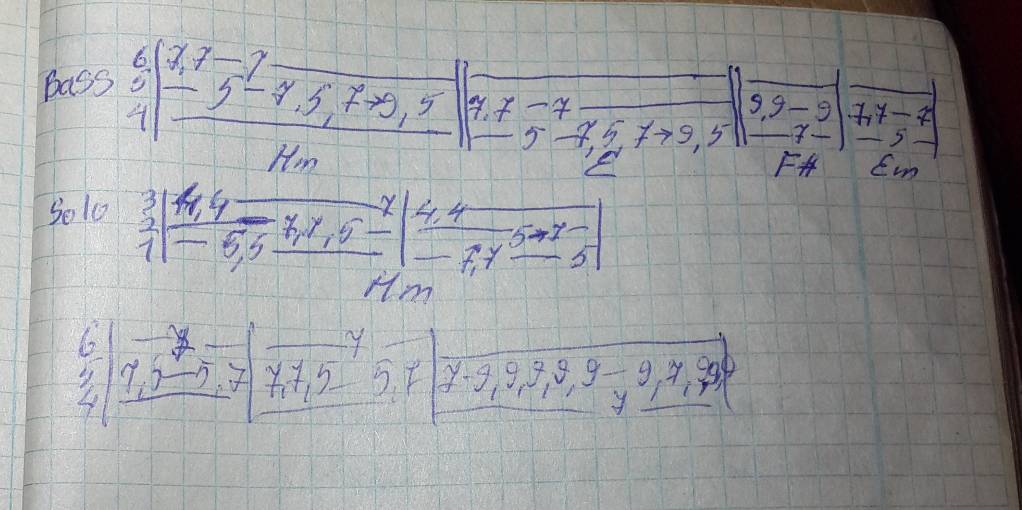 6 | 7,7 — 7
Bass 5 | — 5 — 7,5,7→9,5 || 7,7 — 7 || 9,9 — 9 | 7,7 — 7 |
4 | || — 5 — 7,5,7→9,5 || — 7 — | — 5 — |
Hm E F# Em
3 | 4,4 — 7 | 4,4 — |
Solo 2 | — 7,7,5 — | — 5→7 — |
1 | — 5,5 — | — 7,7 — 5 |
Hm
6 | — 7 — | — 7 — |
5 | 7,5 — 5,7 | 7,7,5 — 5,7 | 7-9,9,9,9,9 — 9,7,9,9
4 | | | 7 — |